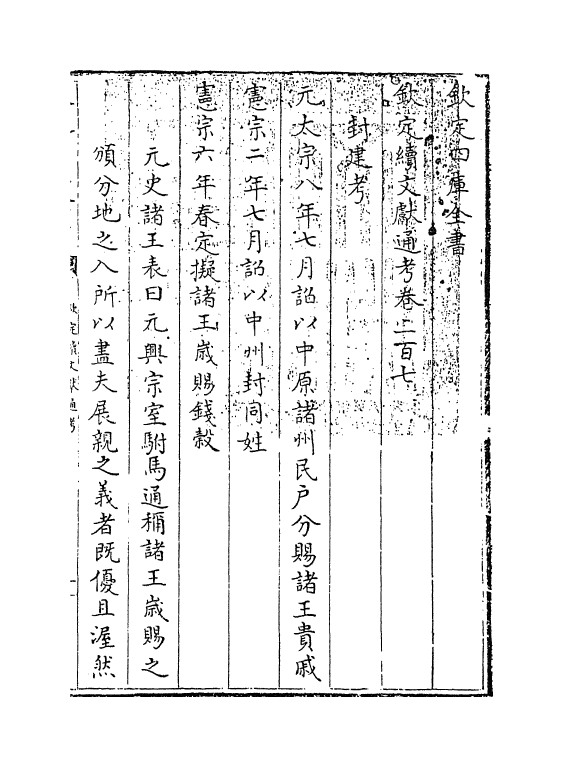 欽定四庫全書
欽定續文獻通考卷二百七
封建考
元太宗八年七月詔以中原諸州民戶分賜諸王貴戚
憲宗二年七月詔以中州封同姓
憲宗六年春定擬諸王歲賜錢穀
元史諸王表曰元興宗室駙馬通稱諸王歲賜之
頒分地之入所以盡夫展親之義者既優且渥然
欽定續文獻通考